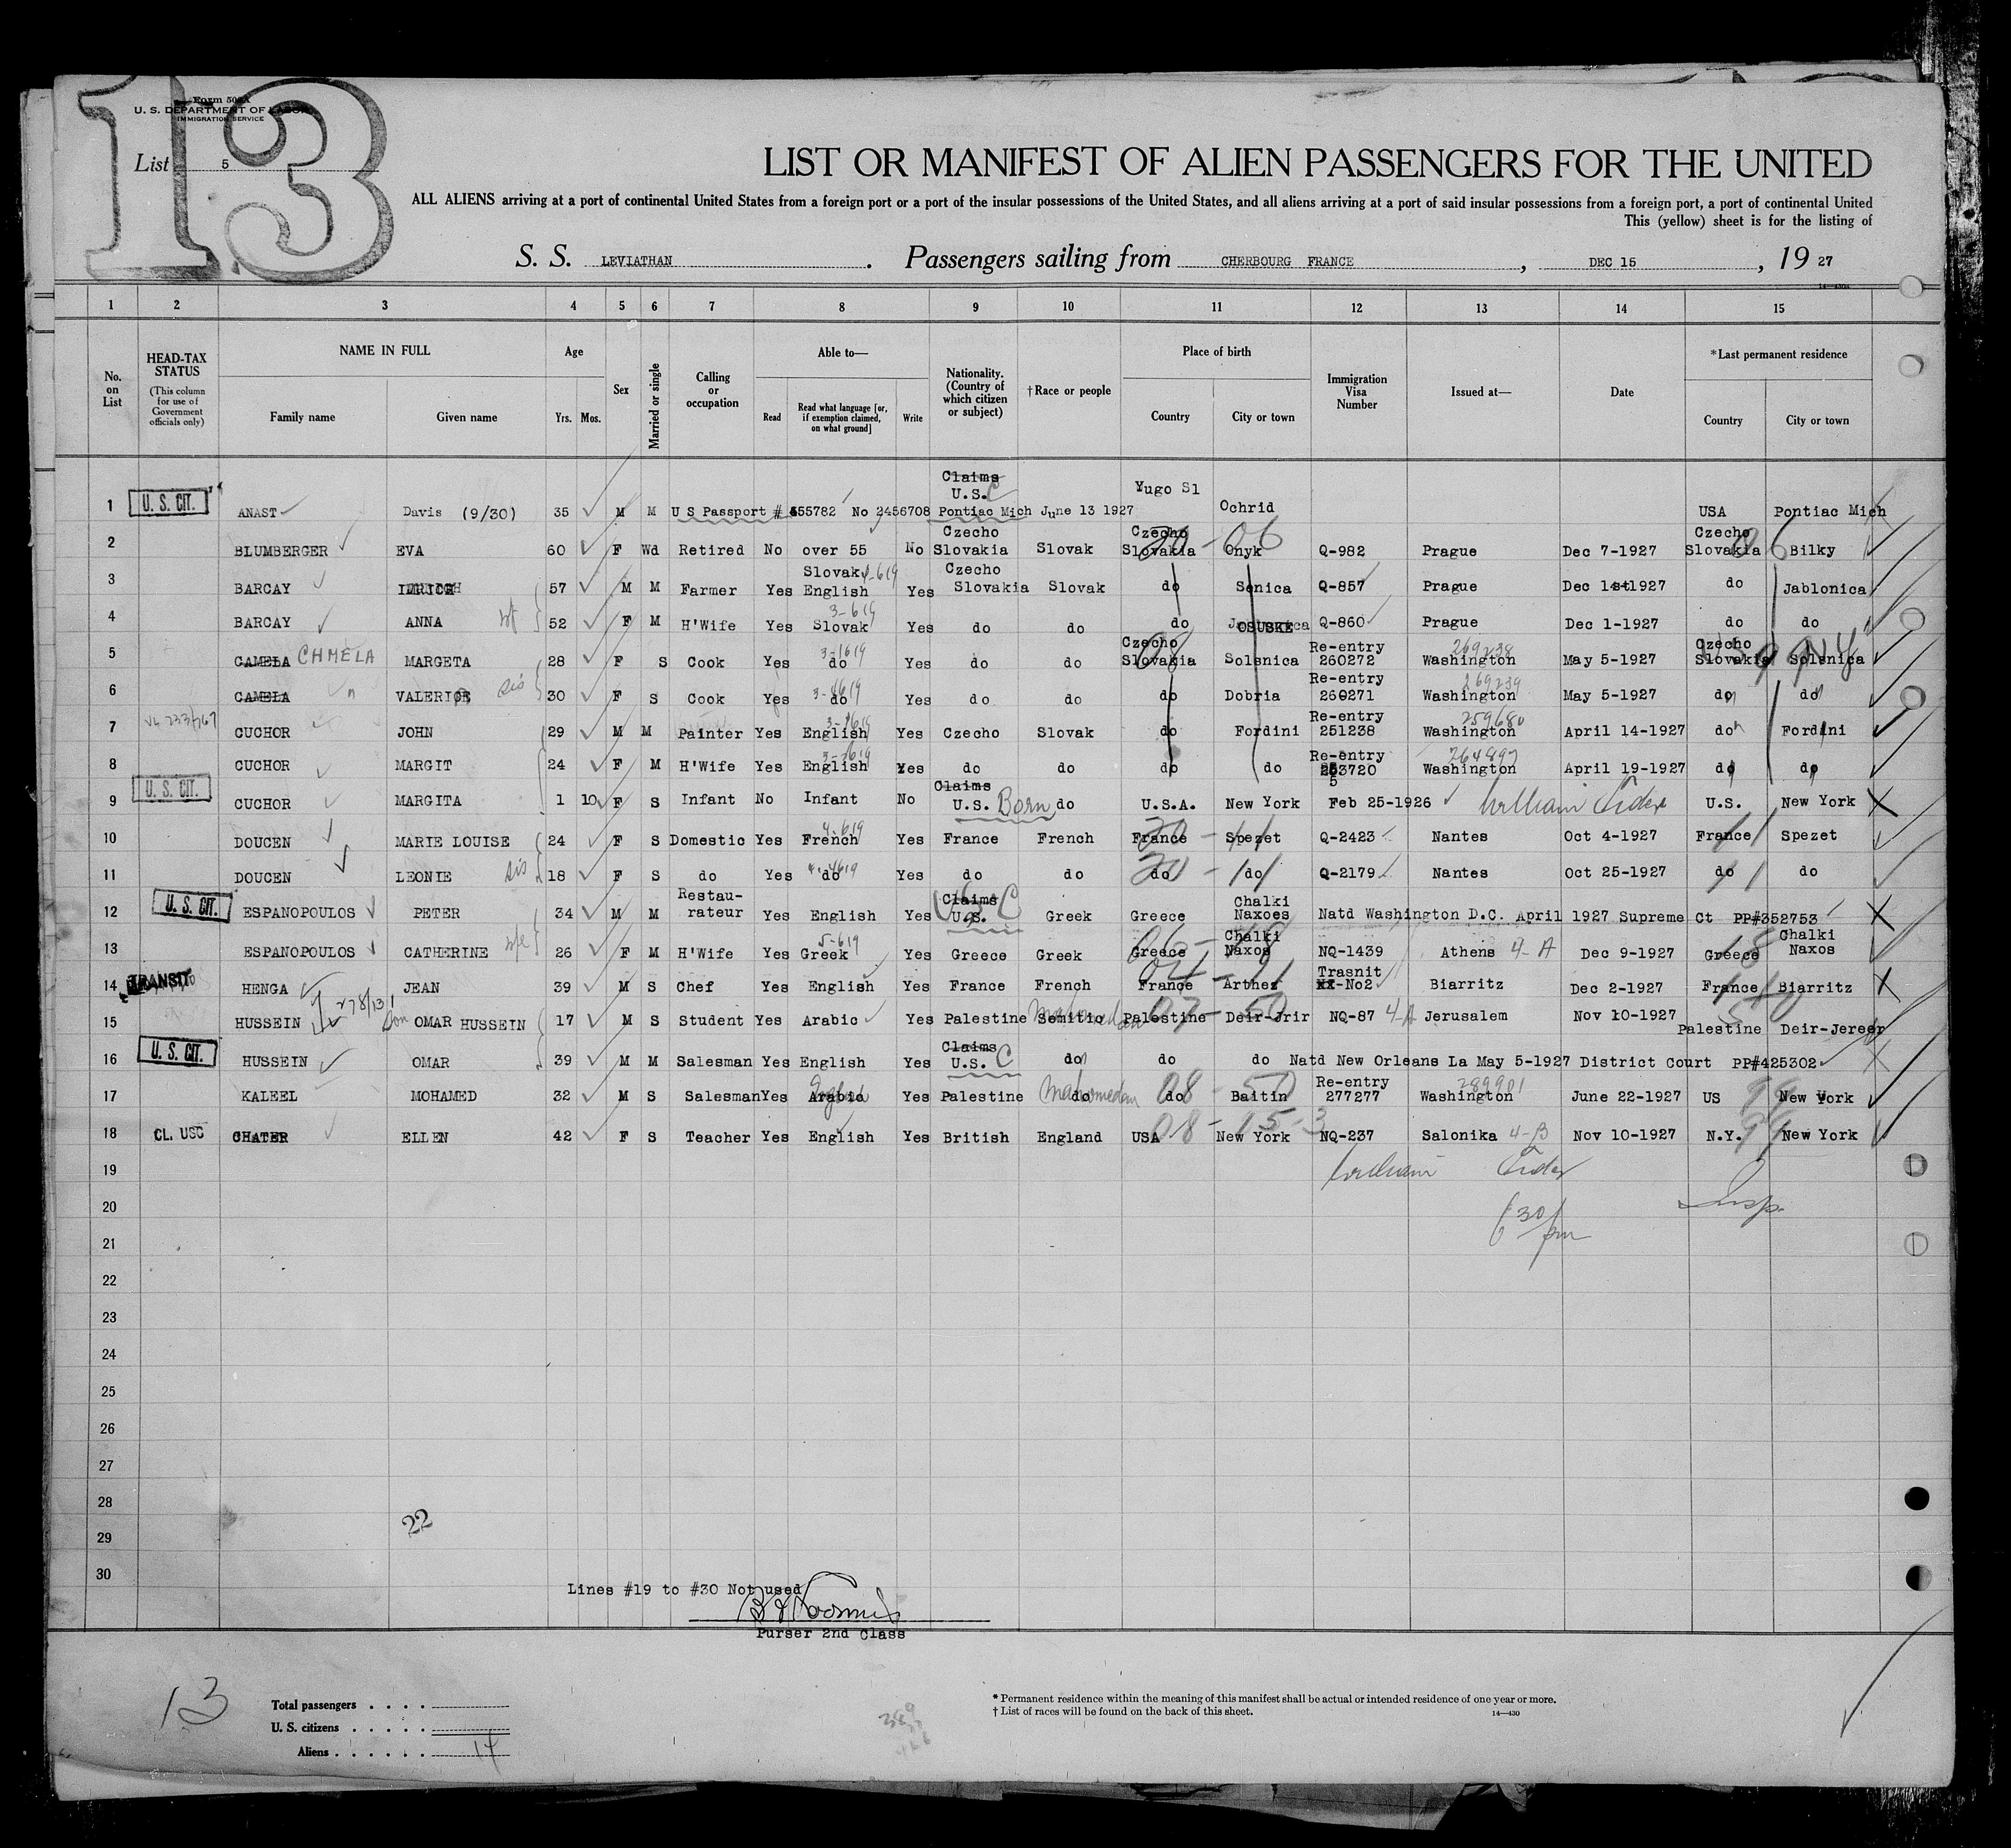 13
Form 500A
U. S. DEPARTMENT OF LABOR
IMMIGRATION SERVICE
List 5
LIST OR MANIFEST OF ALIEN PASSENGERS FOR THE UNITED
ALL ALIENS arriving at a port of continental United States from a foreign port or a port of the insular possessions of the United States, and all aliens arriving at a port of said insular possessions from a foreign port, a port of continental United
This (yellow) sheet is for the listing of
S. S. LEVIATHAN . Passengers sailing from CHERBOURG FRANCE , DEC 15 , 19 27
1 2 3 4 5 6 7 8 9 10 11 12 13 14 15
No. on List HEAD-TAX STATUS (This column for use of Government officials only) NAME IN FULL Family name Given name Age Yrs. Mos. Sex Married or single Calling or occupation Able to— Read Read what language [or, if exemption claimed, on what ground] Write Nationality. (Country of which citizen or subject) †Race or people Place of birth Country City or town Immigration Visa Number Issued at— Date *Last permanent residence Country City or town
1 U. S. CIT. ANAST Davis (9/30) 35 M M U S Passport # 455782 No 2456708 Pontiac Mich June 13 1927 Claims U.S. C Yugo Sl Ochrid USA Pontiac Mich
2 BLUMBERGER EVA 60 F Wd Retired No over 55 No Czecho Slovakia Slovak Czecho Slovakia Onyk Q-982 Prague Dec 7-1927 Czecho Slovakia Bilky
3 BARCAY 57 M M Farmer Yes Slovak English Yes Czecho Slovakia Slovak do Senica Q-857 Prague Dec 1st1927 do Jablonica
4 BARCAY ANNA wf 52 F M H'Wife Yes 3-619 Slovak Yes do do do OSUSKE Q-860 Prague Dec 1-1927 do do
5 CAMELA CHMELA MARGETA 28 F S Cook Yes do Yes do do Czecho Slovakia Solsnica Re-entry 260272 269238 Washington May 5-1927 Czecho Slovakia Solsnica
6 CAMELA VALERIE sis 30 F S Cook Yes do Yes do do do Dobria Re-entry 260271 269239 Washington May 5-1927 do do
7 CUCHOR JOHN 29 M M Painter Yes English Yes Czecho Slovak do Fordini Re-entry 251238 259680 Washington April 14-1927 do Fordini
8 CUCHOR MARGIT 24 F M H'Wife Yes English Yes do do do do Re-entry 253720 264897 Washington April 19-1927 do do
9 U. S. CIT. CUCHOR MARGITA 1 10 F S Infant No Infant No Claims U.S. Born do U.S.A. New York Feb 25-1926 William U.S. New York
10 DOUCEN MARIE LOUISE 24 F S Domestic Yes 4-619 French Yes France French France 20-11 Spezet Q-2423 Nantes Oct 4-1927 France Spezet
11 DOUCEN LEONIE sis 18 F S do Yes do Yes do do do do Q-2179 Nantes Oct 25-1927 do do
12 U. S. CIT. ESPANOPOULOS PETER 34 M M Restau- rateur Yes English Yes Claims U.S. C Greek Greece Chalki Naxoes Natd Washington D.C. April 1927 Supreme Ct PP#352753
13 ESPANOPOULOS CATHERINE wfe 26 F M H'Wife Yes 5-619 Greek Yes Greece Greek Greece Chalki Naxos NQ-1439 Athens 4-A Dec 9-1927 Greece Chalki Naxos
14 TRANSIT HENGA JEAN 39 M S Chef Yes English Yes France French France Arthez Trasnit XX-No2 Biarritz Dec 2-1927 France Biarritz
15 HUSSEIN son OMAR HUSSEIN 17 M S Student Yes Arabic Yes Palestine Semitic Palestine Deir-Jrir NQ-87 4-A Jerusalem Nov 10-1927 Palestine Deir-Jereer
16 U. S. CIT. HUSSEIN OMAR 39 M M Salesman Yes English Yes Claims U.S. C do do do Natd New Orleans La May 5-1927 District Court PP#425302
17 KALEEL MOHAMED 32 M S Salesman Yes Arabic English Yes Palestine do Mahomedan do 08-50 Baitin Re-entry 277277 289901 Washington June 22-1927 US New York
18 CL. USC CHATER ELLEN 42 F S Teacher Yes English Yes British England USA 08-15-3 New York NQ-237 Salonika 4-B Nov 10-1927 N.Y. New York
19 William
20 Insp.
6 30 pm
21
22
23
24
25
26
27
28
29 22
30
Lines #19 to #30 Not used
Purser 2nd Class
13
Total passengers . . . .
U. S. citizens . . . . .
Aliens . . . . . . 14
* Permanent residence within the meaning of this manifest shall be actual or intended residence of one year or more.
† List of races will be found on the back of this sheet.
14—430